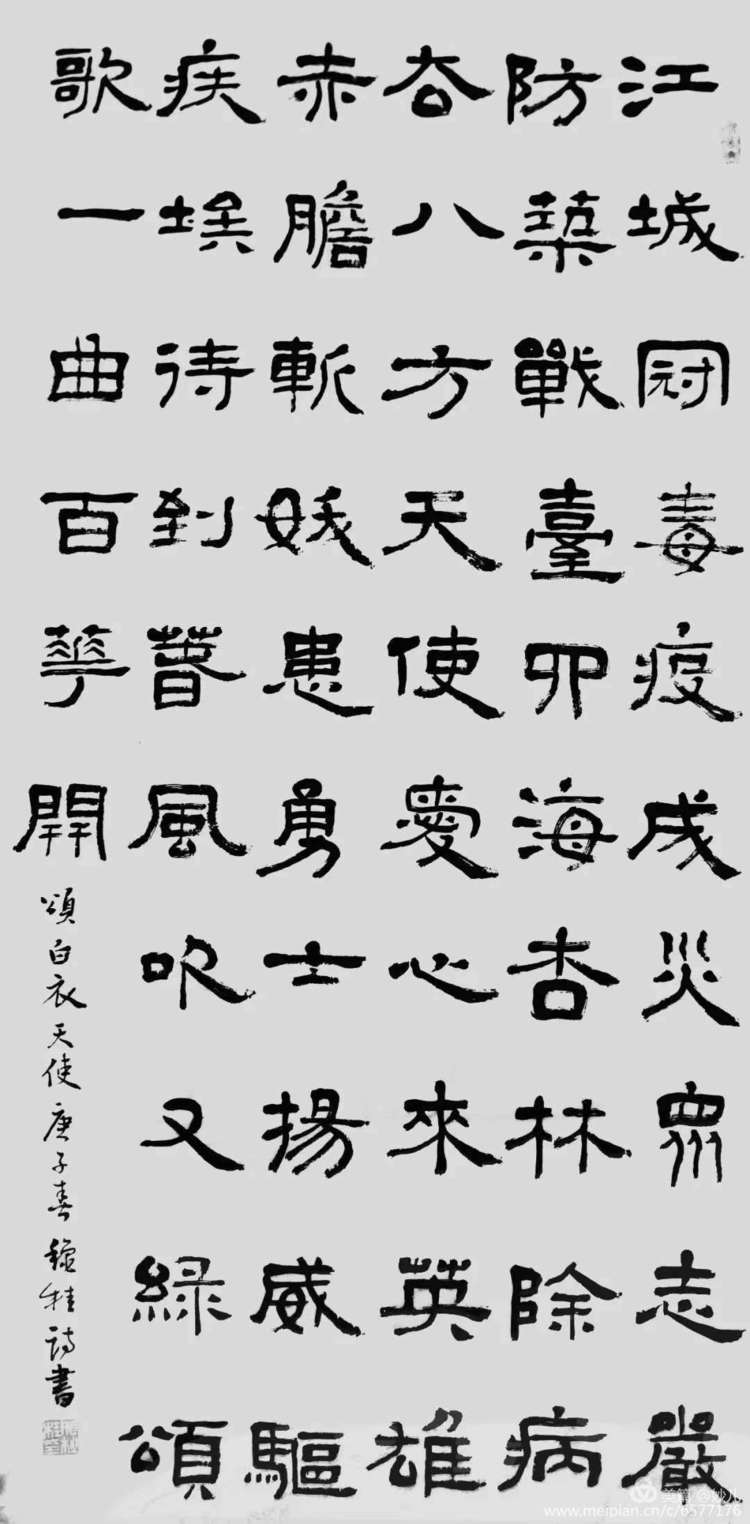 江城冠毒疫成災眾志嚴
防築戰臺四海杏林除病
去八方天使愛心來英雄
赤膽斬妖患勇士揚威驅
疾埃待到春風吹又綠頌
歌一曲百華開
頌白衣天使庚子春詩書
美篇
www.meipian.cn/c/6577176